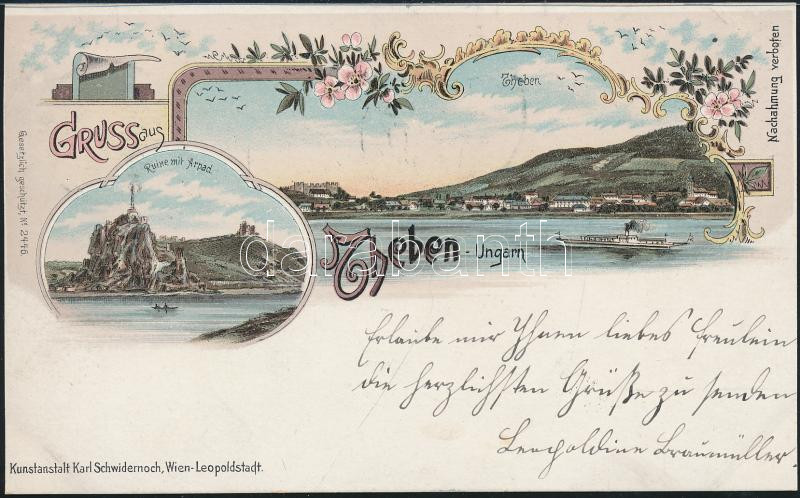 Gruss aus
Theben
Ruine mit Arpad
Theben - Ungarn
Gesetzlich geschützt, № 2446.
Nachahmung verboten
darabanth
Erlaube mir Ihnen liebes freulein
die herzlichsten Grüße zu senden
Leopoldine Braumüller.
Kunstanstalt Karl Schwidernoch, Wien-Leopoldstadt.